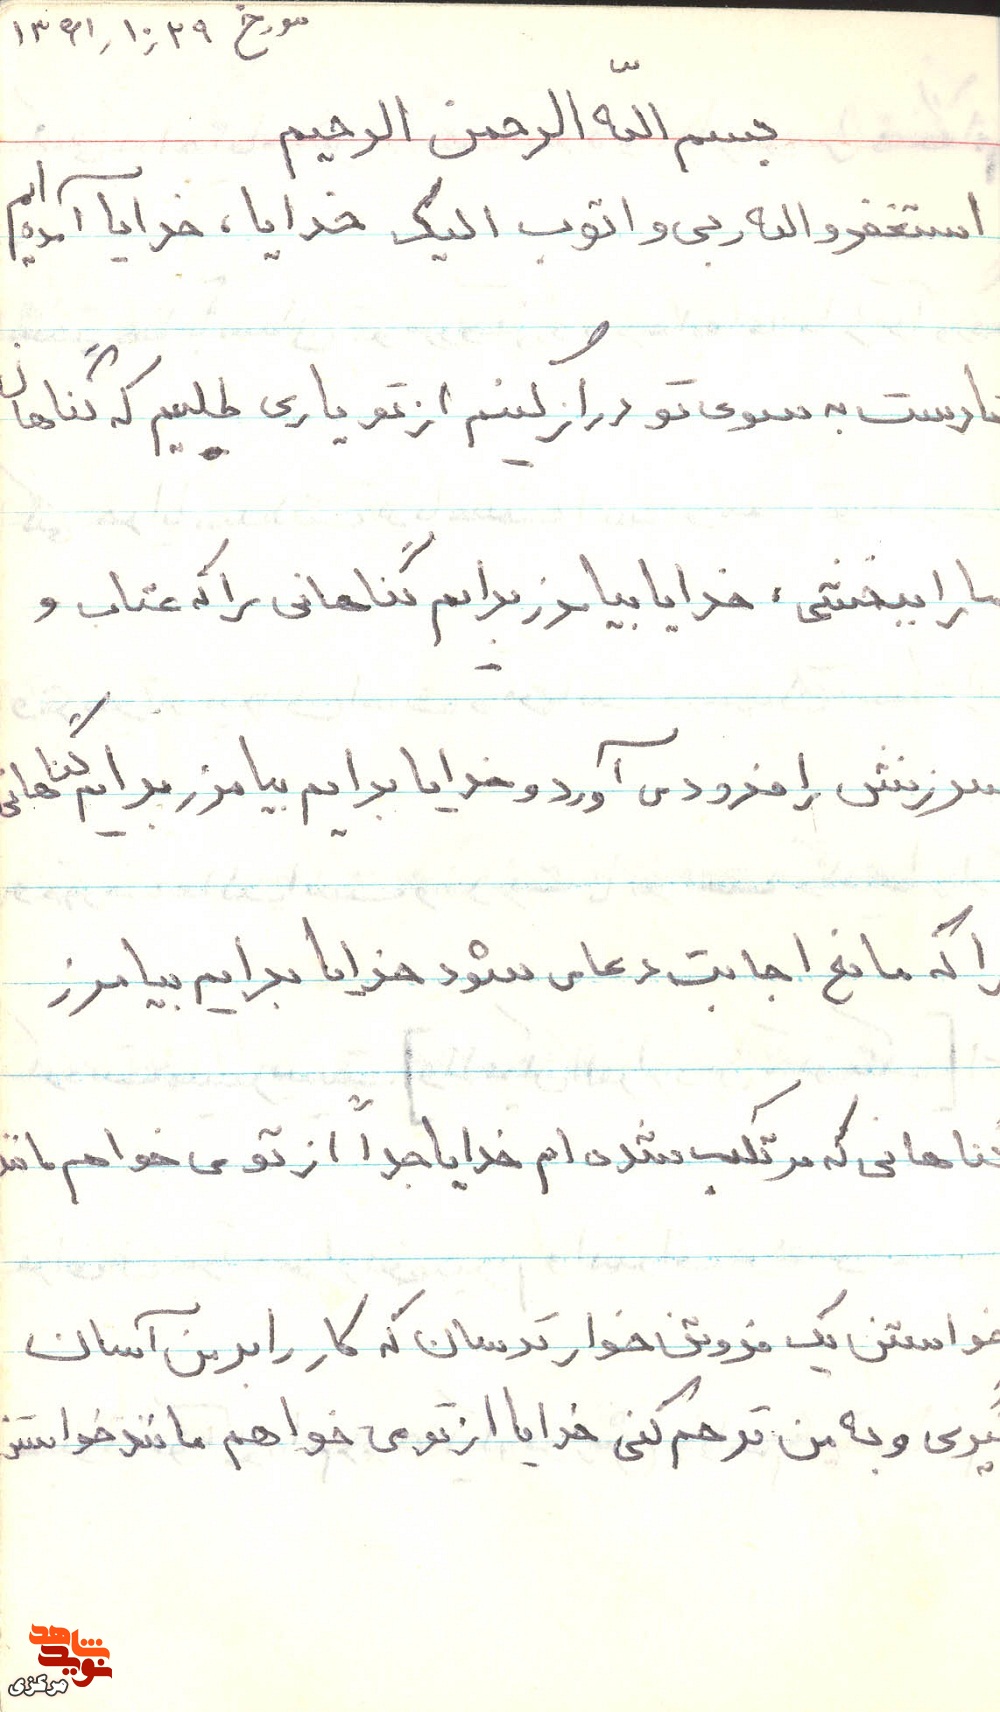 مورخ ۱۳۶۱٫۱۰٫۲۹
بسم الله الرحمن الرحیم
استغفرو الله ربی و اتوب الیک خدایا، خدایا آمده‌ایم
تا دست به سوی تو دراز کنیم از تو یاری طلبیم که گناهان
ما را ببخشی، خدایا بیامرز برایم گناهانی را که عتاب و
سرزنش را فرود می آورد و خدایا برایم بیامرز برایم گناهانی
را که مانع اجابت دعا می شود خدایا برایم بیامرز
گناهانی که مرتکب شده ام خدایا جداً از تو می خواهم مانند
خواستن یک فروتن خوار ترسان که کار را بر من آسان
گیری و به من ترحم کنی خدایا از تو می خواهم مانند خواستن
شاهد
نوید
مرکزی